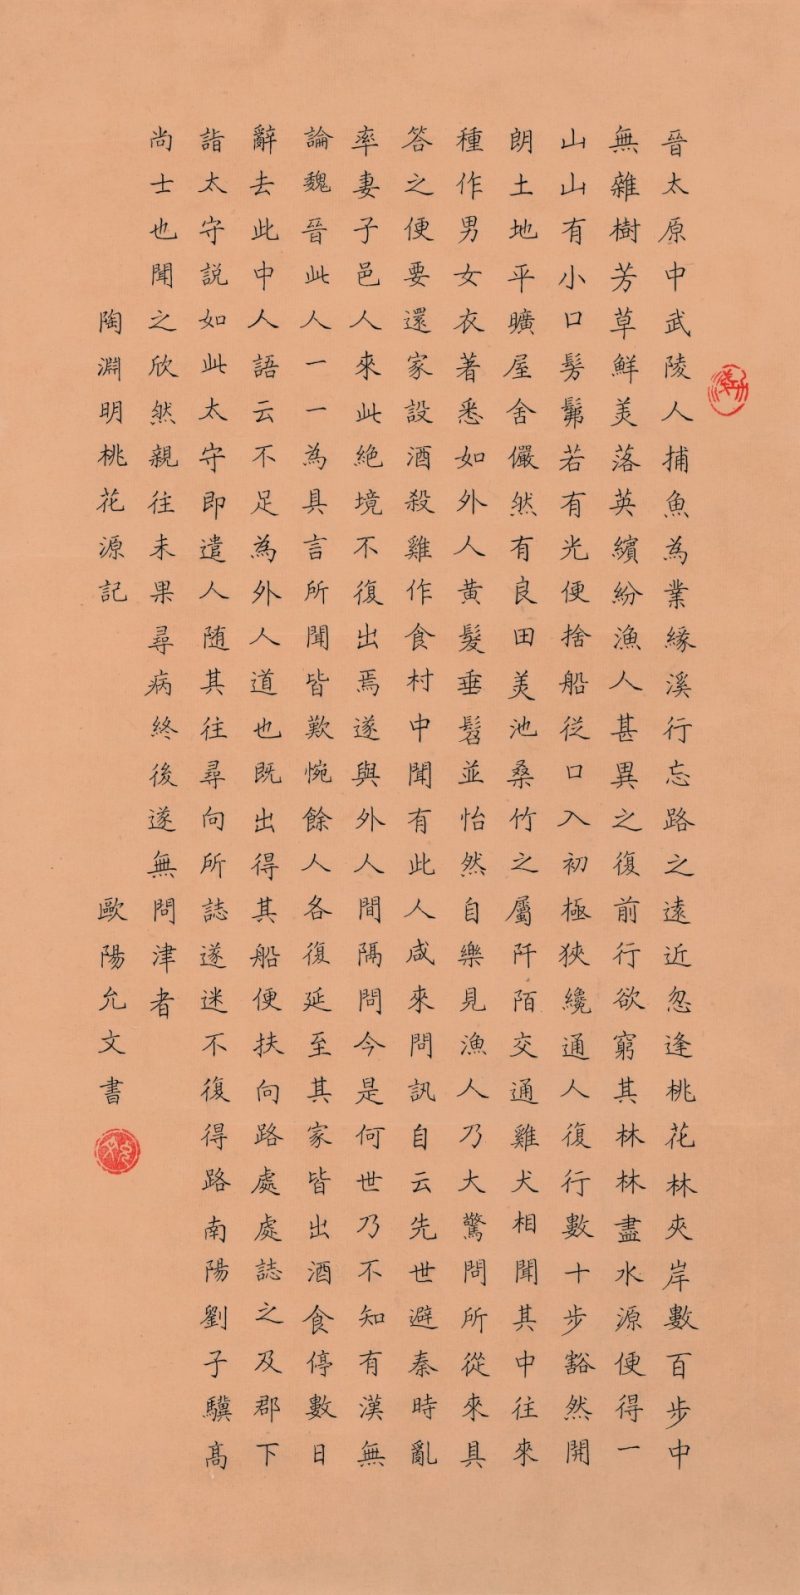 晉太原中武陵人捕魚為業緣溪行忘路之遠近忽逢桃花林夾岸數百步中
無雜樹芳草鮮美落英繽紛漁人甚異之復前行欲窮其林林盡水源便得一
山山有小口髣髴若有光便捨船従口入初極狹纔通人復行數十步豁然開
朗土地平曠屋舍儼然有良田美池桑竹之屬阡陌交通雞犬相聞其中往來
種作男女衣著悉如外人黃髮垂髫並怡然自樂見漁人乃大驚問所從來具
答之便要還家設酒殺雞作食村中聞有此人咸來問訊自云先世避秦時亂
率妻子邑人來此絕境不復出焉遂與外人間隔問今是何世乃不知有漢無
論魏晉此人一一為具言所聞皆歎惋餘人各復延至其家皆出酒食停數日
辭去此中人語云不足為外人道也既出得其船便扶向路處處誌之及郡下
詣太守説如此太守即遣人随其往尋向所誌遂迷不復得路南陽劉子驥髙
尚士也聞之欣然親往未果尋病終後遂無問津者
陶淵明桃花源記 歐陽允文書